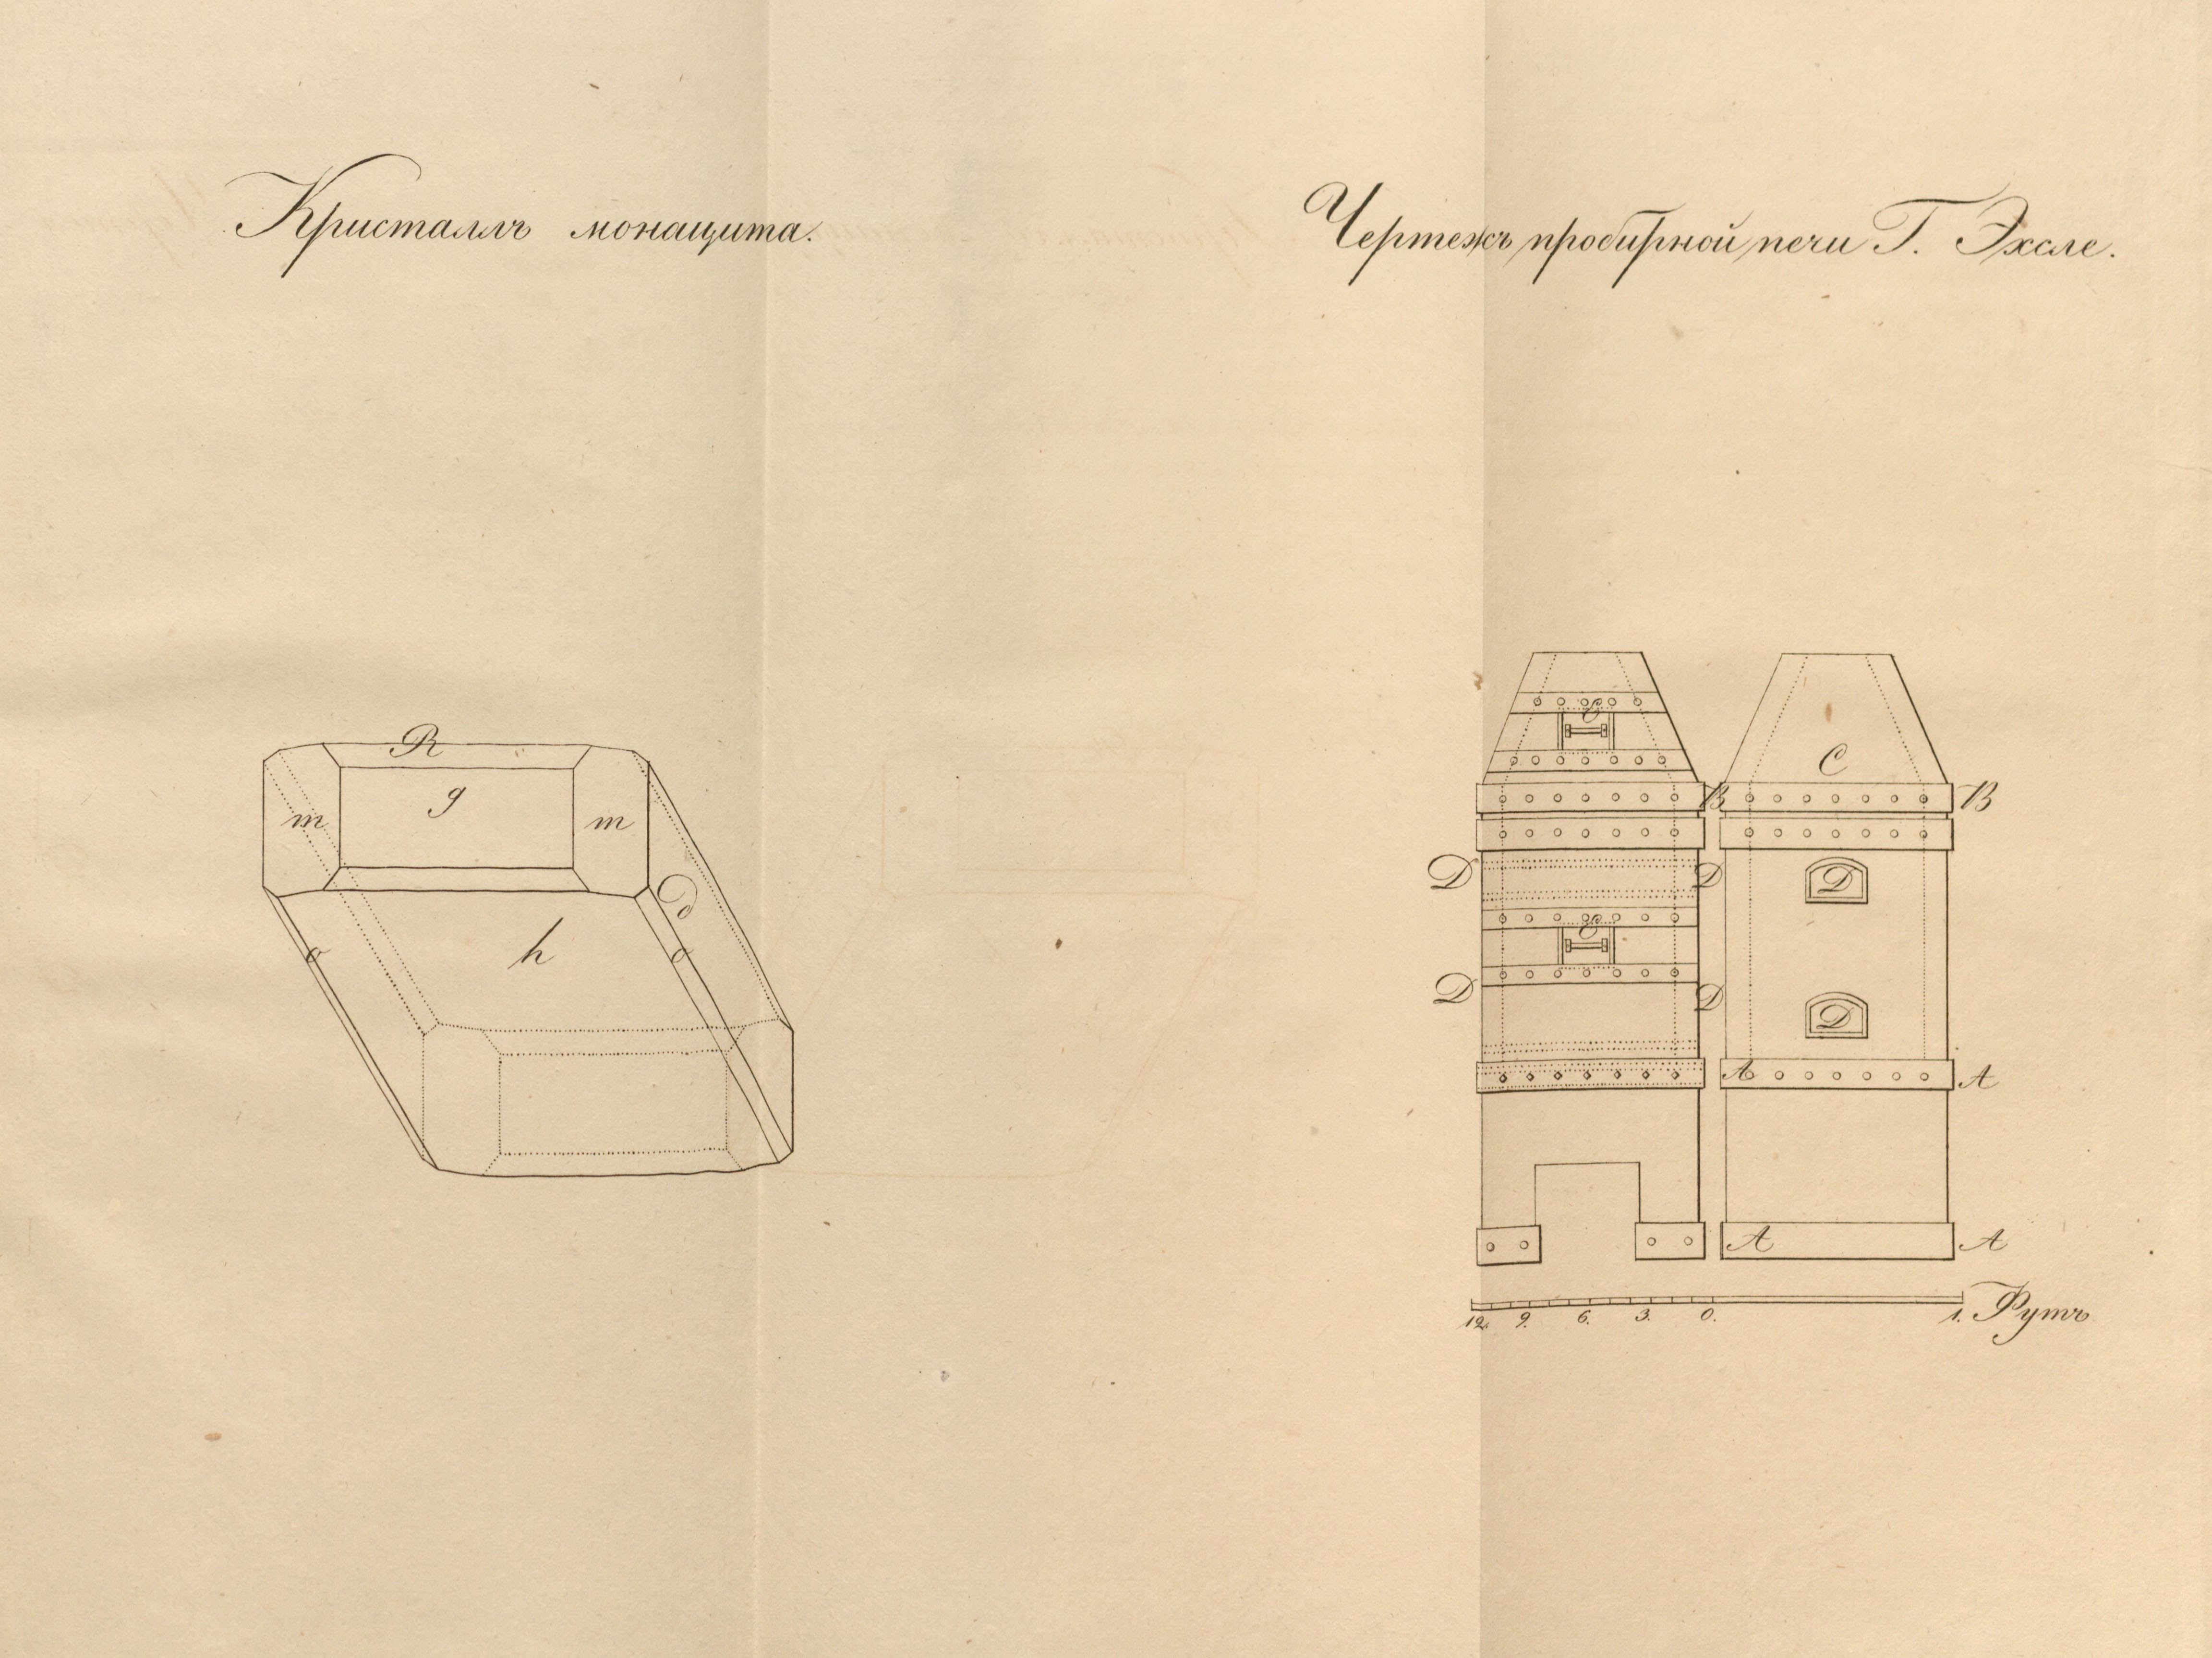 Кристаллъ монацита.
Чертежъ пробирной печи Г. Эхсле.
R
g
m m
h
o o
P
C
C
B B
D D D
C
D D D
A A
A A
12. 9. 6. 3. 0. 1. Футъ